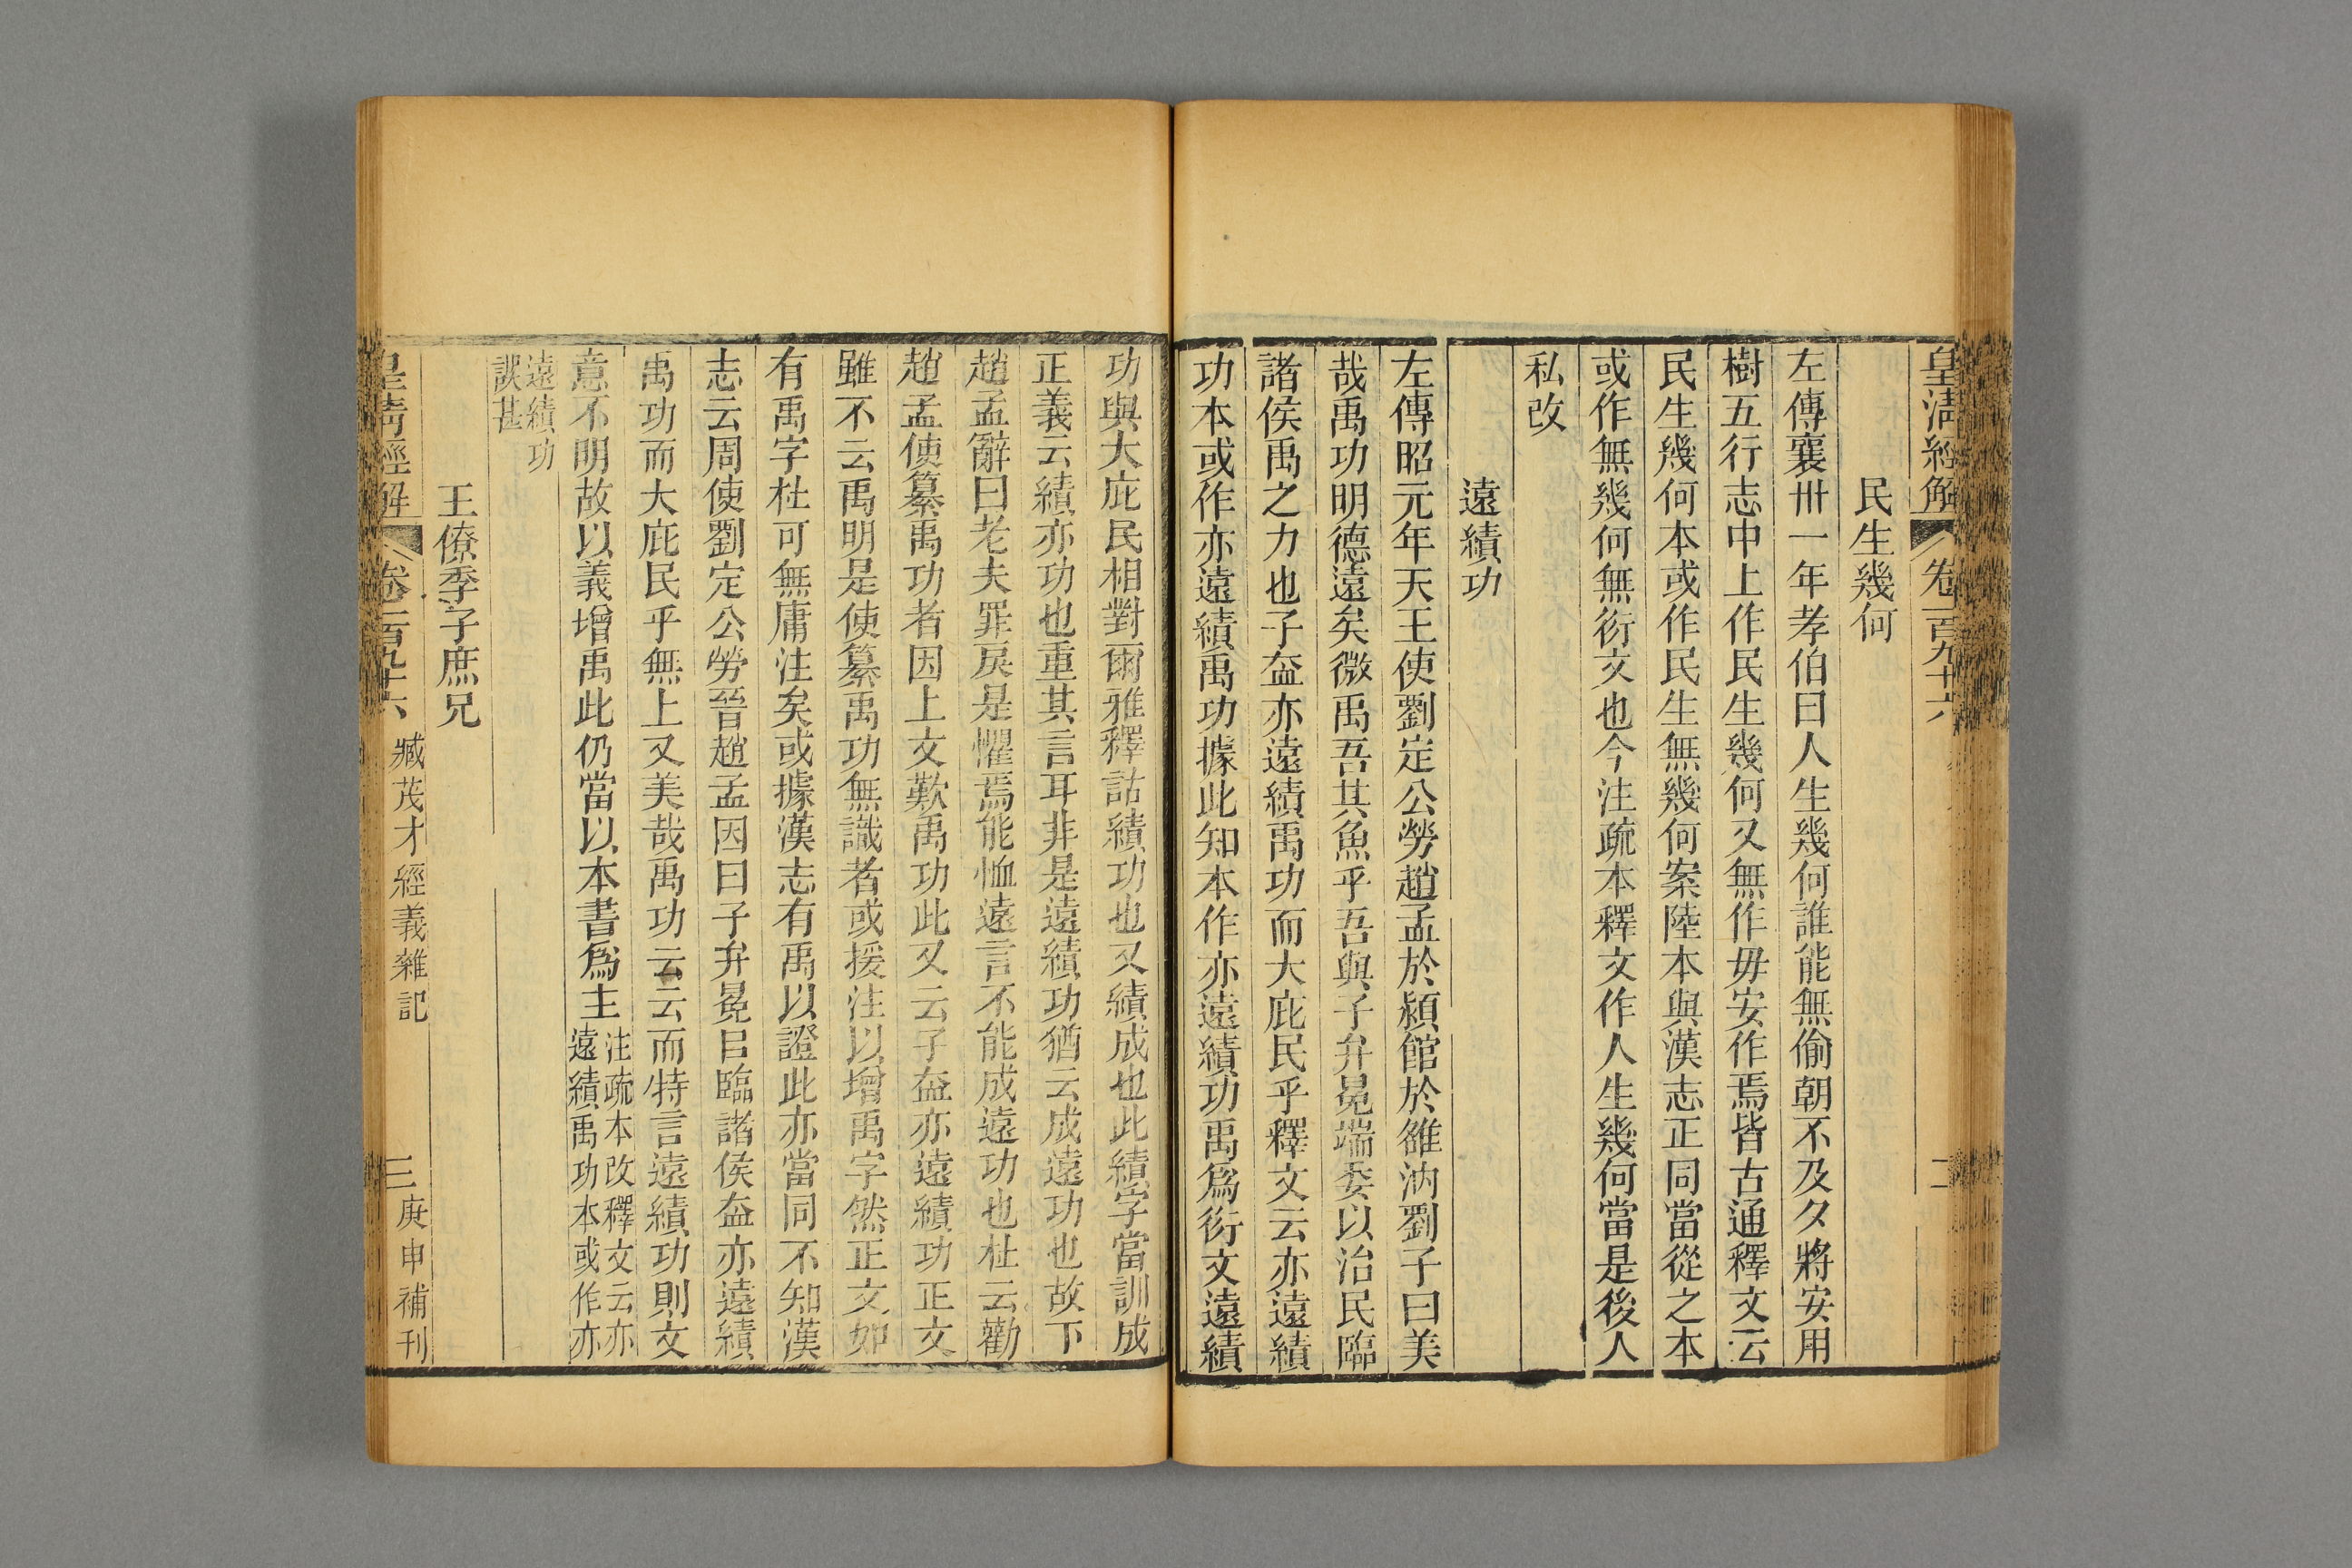 皇清經解 卷一百九十六 二
民生幾何
左傳襄卅一年孝伯曰人生幾何誰能無偷朝不及夕將安用
樹五行志中上作民生幾何又無作毋安作焉皆古通釋文云
民生幾何本或作民生無幾何案陸本與漢志正同當從之本
或作無幾何無衍文也今注疏本釋文作人生幾何當是後人
私改
遠績功
左傳昭元年天王使劉定公勞趙孟於潁館於雒汭劉子曰美
哉禹功明德遠矣微禹吾其魚乎吾與子弁冕端委以治民臨
諸侯禹之力也子盍亦遠績禹功而大庇民乎釋文云亦遠績
功本或作亦遠績禹功據此知本作亦遠績功禹爲衍文遠績
功與大庇民相對爾雅釋詁績功也又績成也此績字當訓成
正義云績亦功也重其言耳非是遠績功猶云成遠功也故下
趙孟辭曰老夫罪戾是懼焉能恤遠言不能成遠功也杜云勸
趙孟使纂禹功者因上文歎禹功此又云子盍亦遠績功正文
雖不云禹明是使纂禹功無識者或援注以增禹字然正文如
有禹字杜可無庸注矣或據漢志有禹以證此亦當同不知漢
志云周使劉定公勞晉趙孟因曰子弁冕㠯臨諸侯盍亦遠績
禹功而大庇民乎無上文美哉禹功云云而特言遠績功則文
意不明故以義增禹此仍當以本書爲主注疏本改釋文云亦
遠績禹功本或作亦
遠績功
誤甚
王僚季子庶兄
皇清經解 卷一百九十六 臧茂才經義雜記 三 庚申補刊